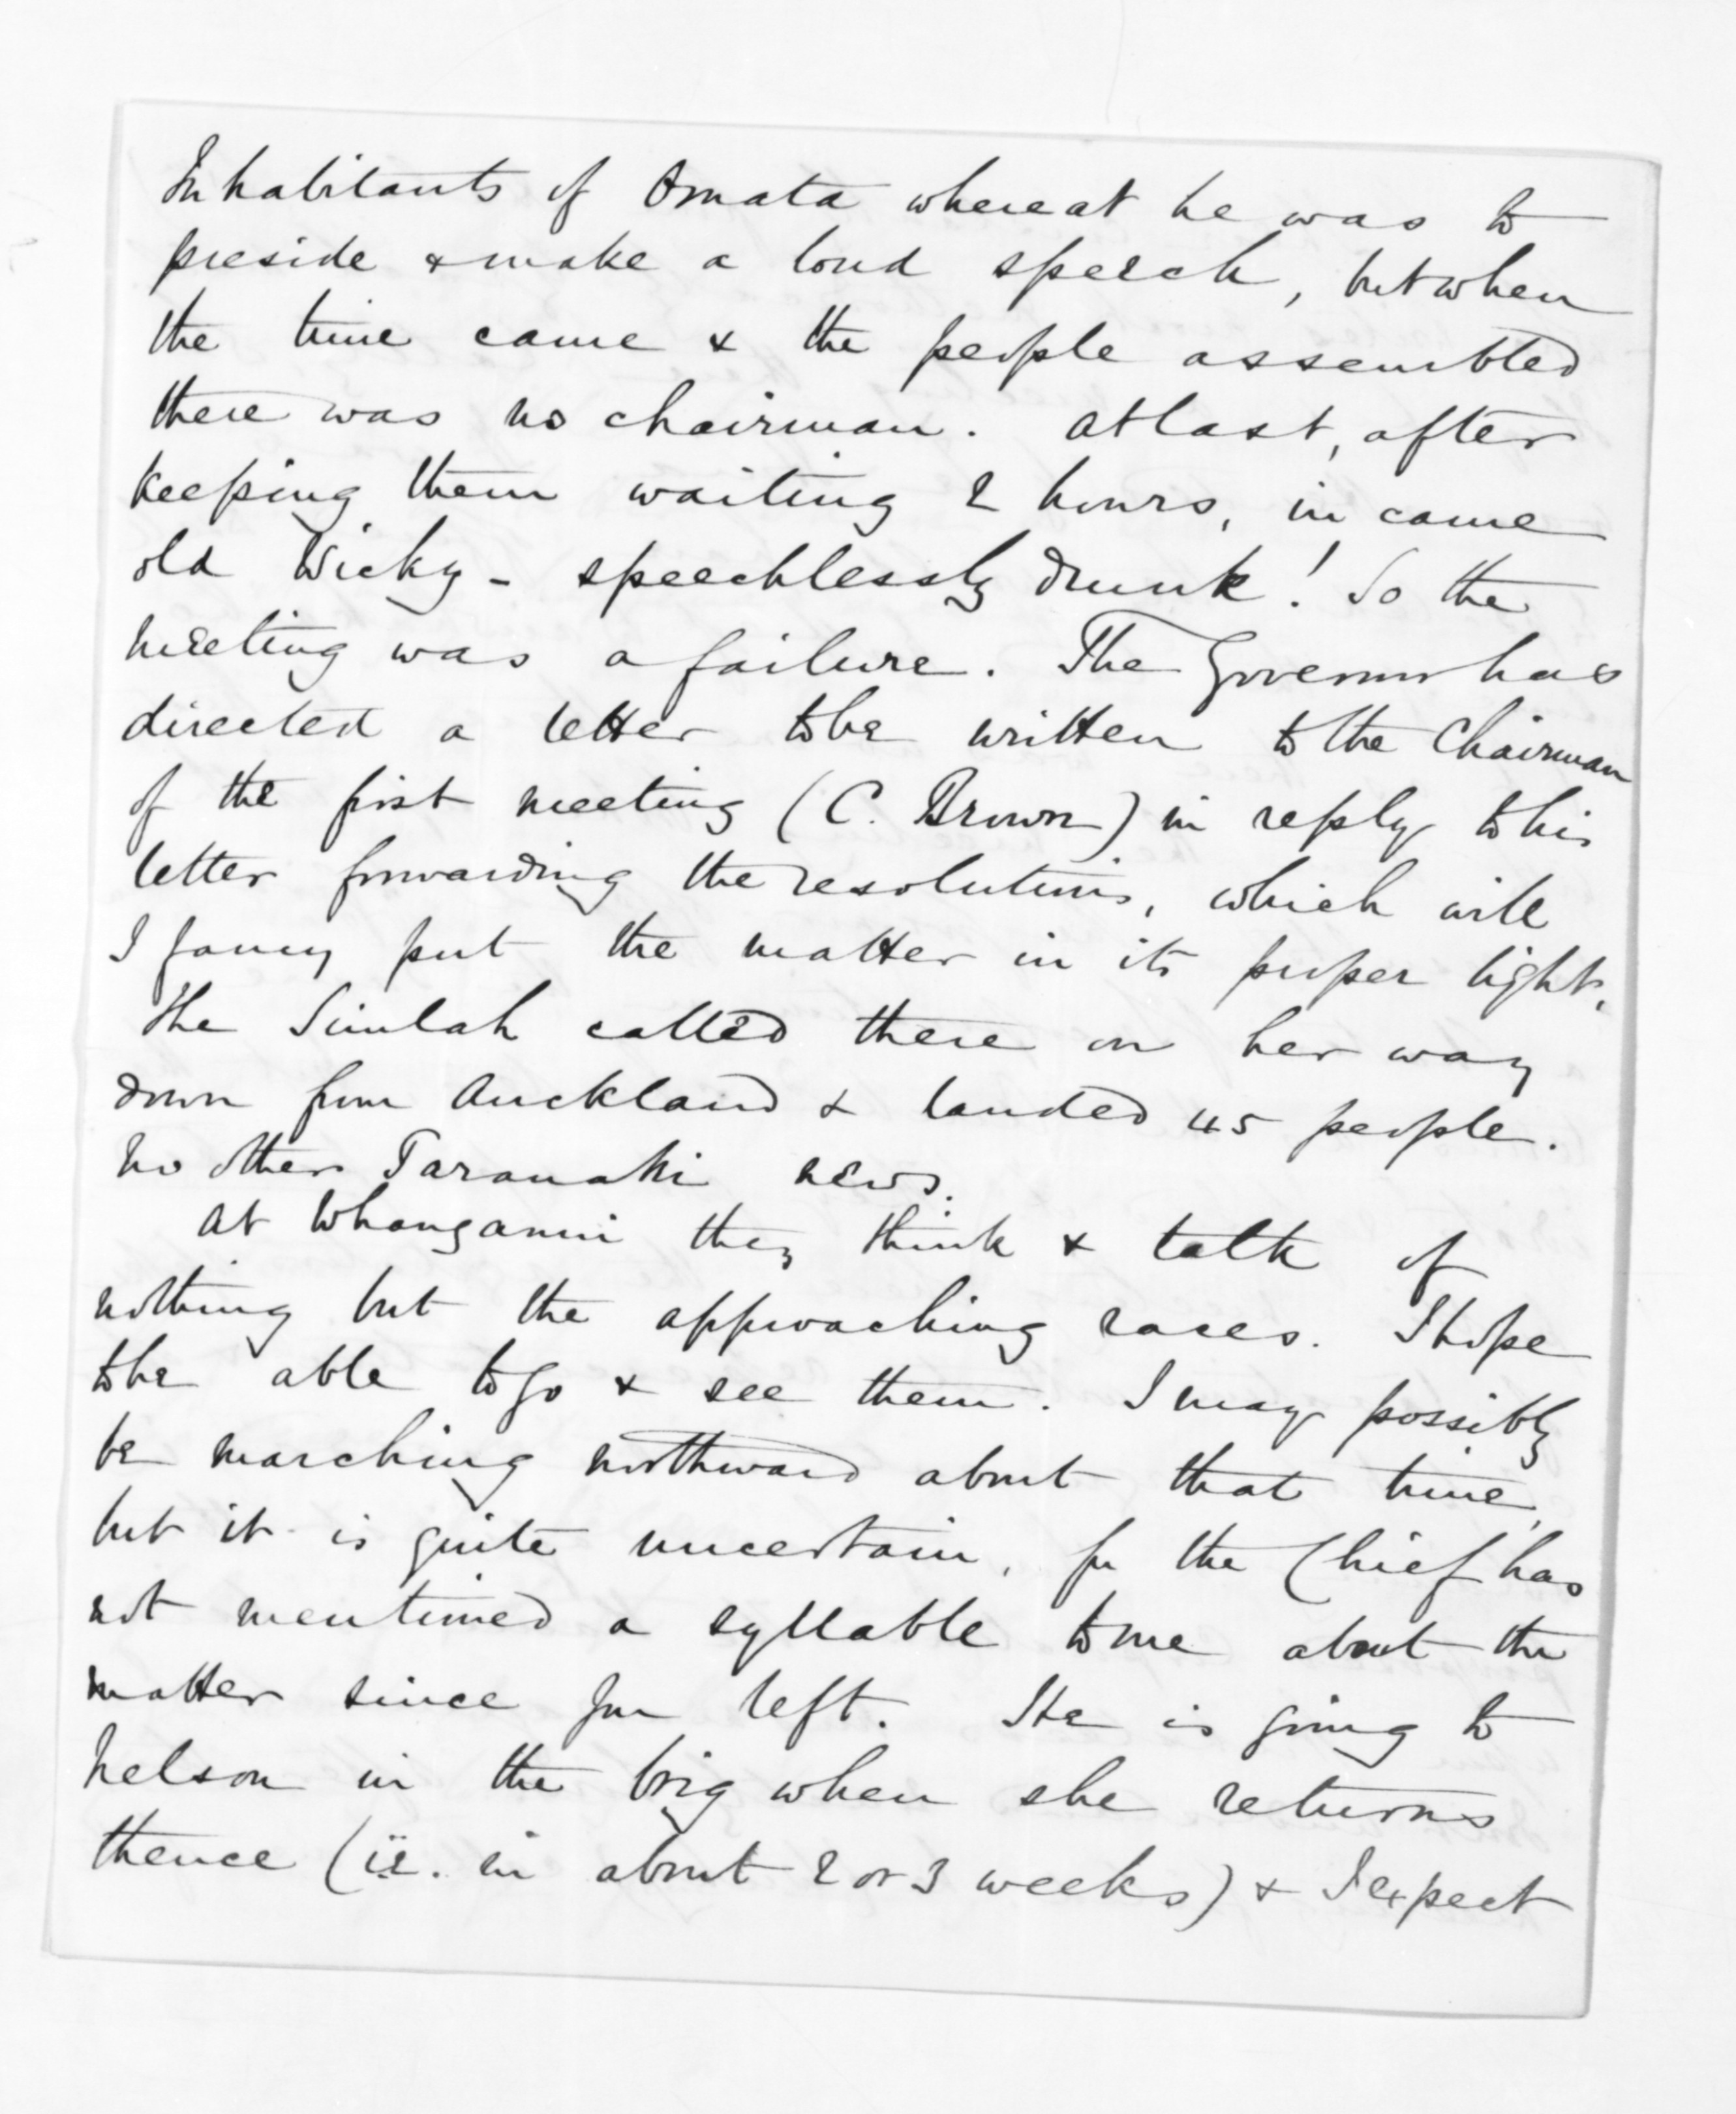 Inhabitants of Omata whereat he was to
preside & make a loud speech, but when
the time came & the people assembled
there was no chairman. At last, after
keeping them waiting 2 hours, in came
old Wicky - speechlessly drunk! So the
meeting was a failure. The Governor has
directed a letter to be written to the Chairman
of the first meeting (C. Brown) in reply to his
letter forwarding the resolutions, which will
I fancy put the matter in its proper light.
The Simlah called there on her way
down from Auckland & landed 45 people.
No other Taranaki news.
At Whanganui they think & talk of
nothing but the approaching races. I hope
to be able to go & see them. I may possibly
be marching northward about that time,
but it is quite uncertain, for the Chief has
not mentioned a syllable to me about the
matter since you left. He is going to
Nelson in the brig when she returns
thence (i.e. in about 2 or 3 weeks) & I expect